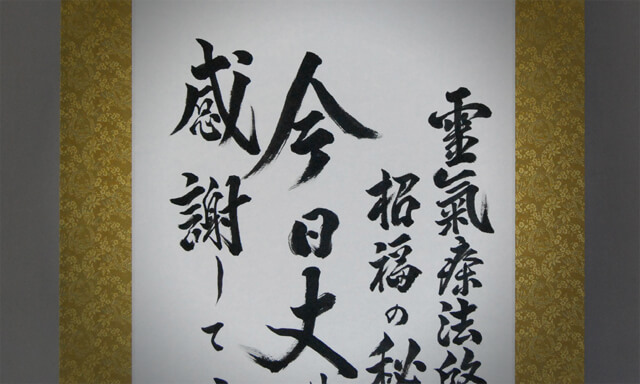 靈氣療法
招福の秘
今日丈
感謝して